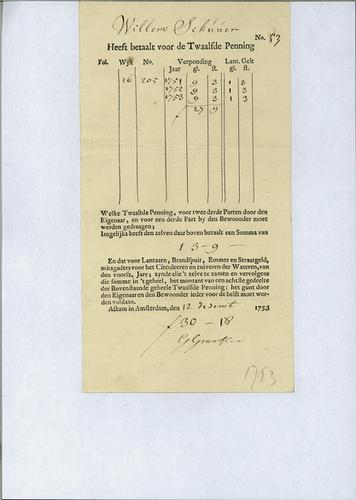 Willem Schúúer
No. 83
Heeft betaalt voor de Twaalfde Penning
Fol. Wyk No. Verponding Lant. Gelt
Jaar gl. st. gl. st.
16 205 1751 9 3 1 3
1752 9 3 1 3
1753 9 3 1 3
27 9
Welke Twaalfde Penning, voor twee derde Parten door den
Eigenaar, en voor een derde Part by den Bewoonder moet
werden gedraagen;
Insgelijks heeft den zelven daar boven betaalt een Somma van
1 3 - 9 -
En dat voor Lantaarn, Brandspuit, Emmer en Straatgeld,
mitsgaders voor het Circuleren en zuiveren der Wateren, van
den voorsz. Jare; zynde alle 't zelve te zamen en vervolgens
die somme in 't geheel, het montant van een achtste gedeelte
der Bovenstaande geheele Twaalfde Penning: het gunt door
den Eigenaar en den Bewoonder ieder voor de helft moet wer-
den voldaan.
Actum in Amsterdam, den 12 decemb 1753
f 30 - 18
1753